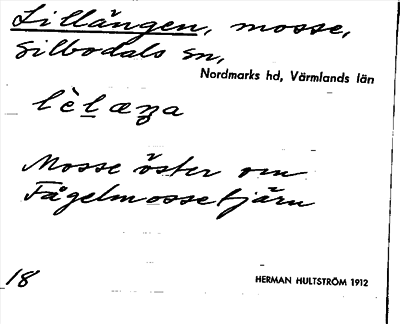 Lillängen, mosse,
Silbodals sn,
Nordmarks hd, Värmlands län
Mosse öster om
Fågelmossetjärn
18
HERMAN HULTSTRÖM 1912